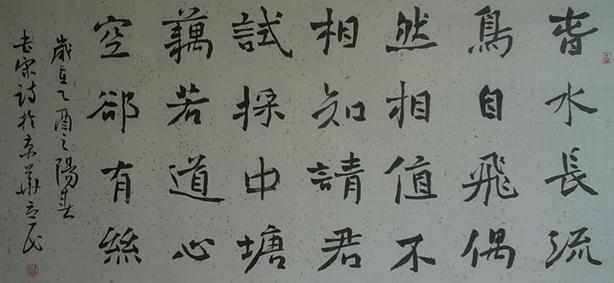 春水長流
鳥自飛偶
然相值不
相知請君
試採中塘
藕若道心
空卻有絲
歲在乙酉之陽春
書宋詩於京華立民